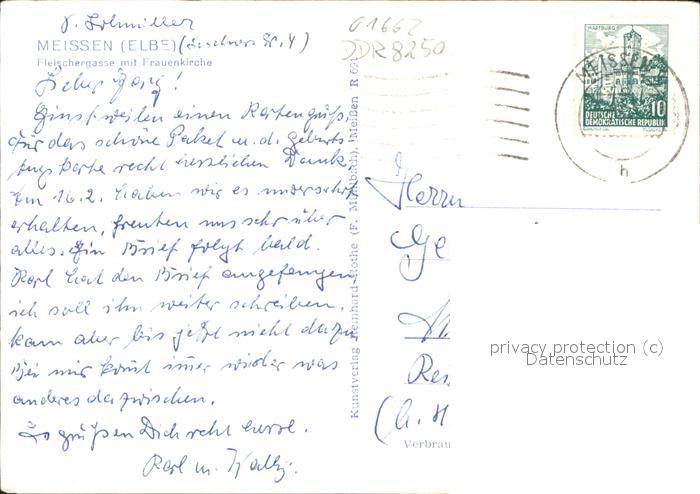 MEISSEN (ELBE)
Fleischergasse mit Frauenkirche
01662
DDR 8250
Lieber Georg!
Einstweilen einen Kartengruß,
für das schöne Paket u. d. Geburts-
tags Karte recht herzlichen Dank
Am 16.2. haben wir es unversehrt
erhalten, freuten uns sehr über
alles. Ein Brief folgt bald.
Karl hat den Brief angefangen
ich soll ihm weiter schreiben,
kam aber bis jetzt nicht dazu
Bei mir komt imer wieder was
anderes dazwischen.
So grüßen Dich recht herzl.
Karl u.
Kunstverlag Reinhard Rothe (F. Mühlbach), Meißen R 691
WARTBURG
10
DEUTSCHE
DEMOKRATISCHE REPUBLIK
MEISSEN
h
Herrn
Ge
Rei
Verbrau
privacy protection (c)
Datenschutz